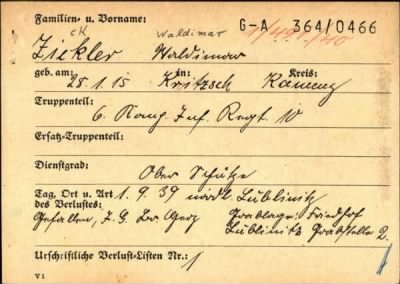 Familien- u. Vorname: G-A 364/0466
cK Waldimar
Ziekler Waldimar
geb. am: 28.1.15 in: Kritzsch Kreis: Kamenz
Truppenteil:
6. Komp. Inf. Regt. 10
Ersatz-Truppenteil:
Dienstgrad:
Ober Schütze
Tag, Ort u. Art 1.9.39 nördl. Lublinitz
des Verlustes: Grablage: Friedhof
Gefallen, I.G. Lublinitz Grabstelle 2.
Urschriftliche Verlust-Listen Nr.: 1
V 1